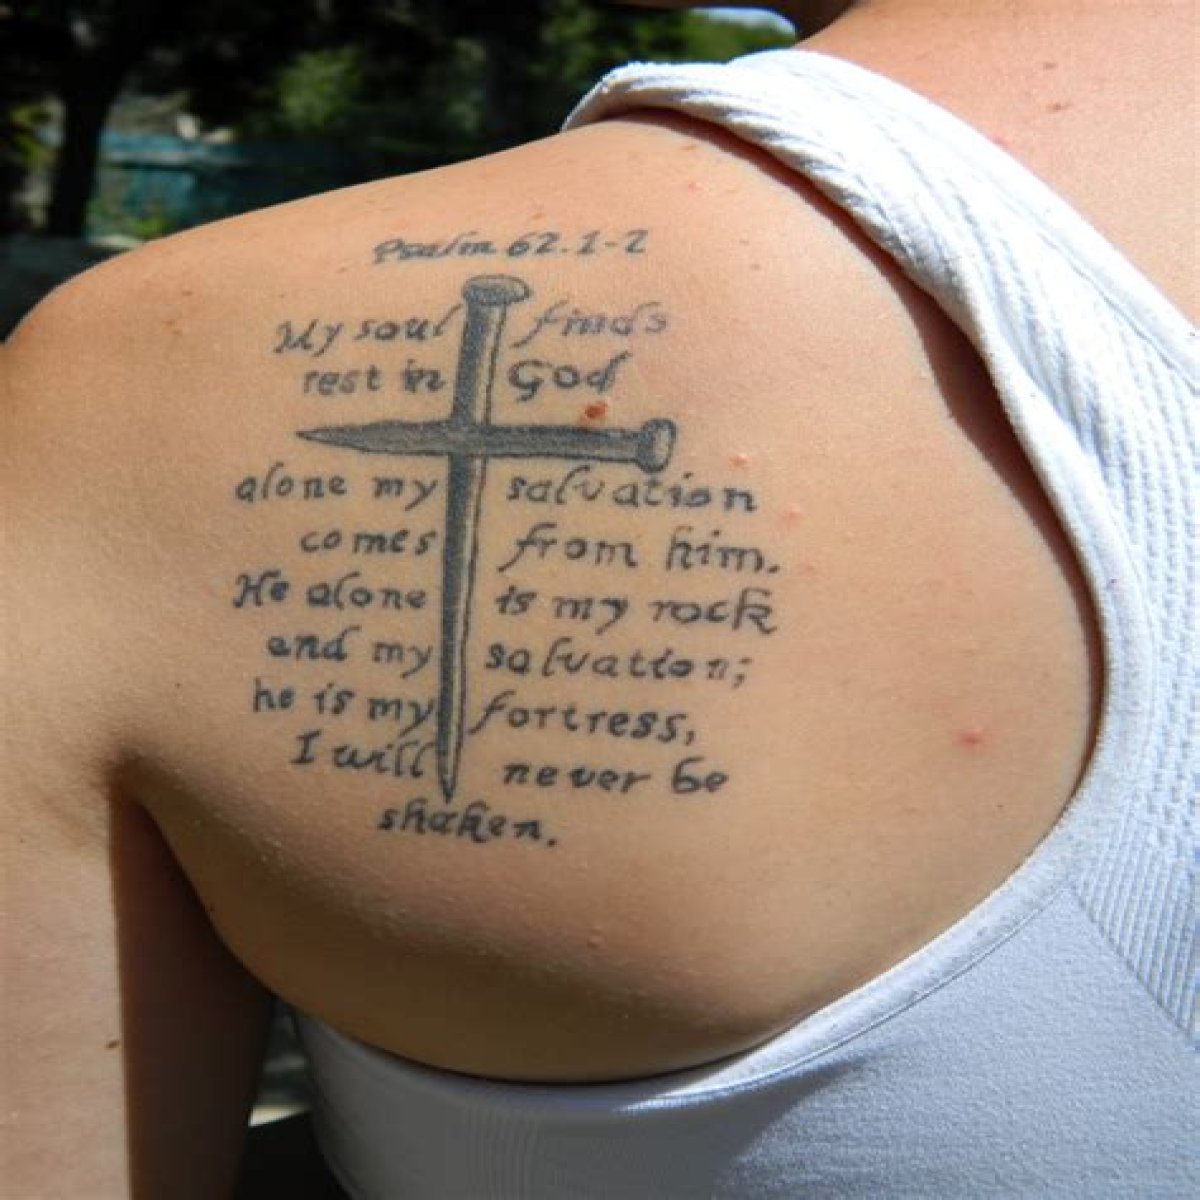 Psalm 62.1-2
My soul finds
rest in God
alone my salvation
comes from him.
He alone is my rock
and my salvation;
he is my fortress,
I will never be
shaken.